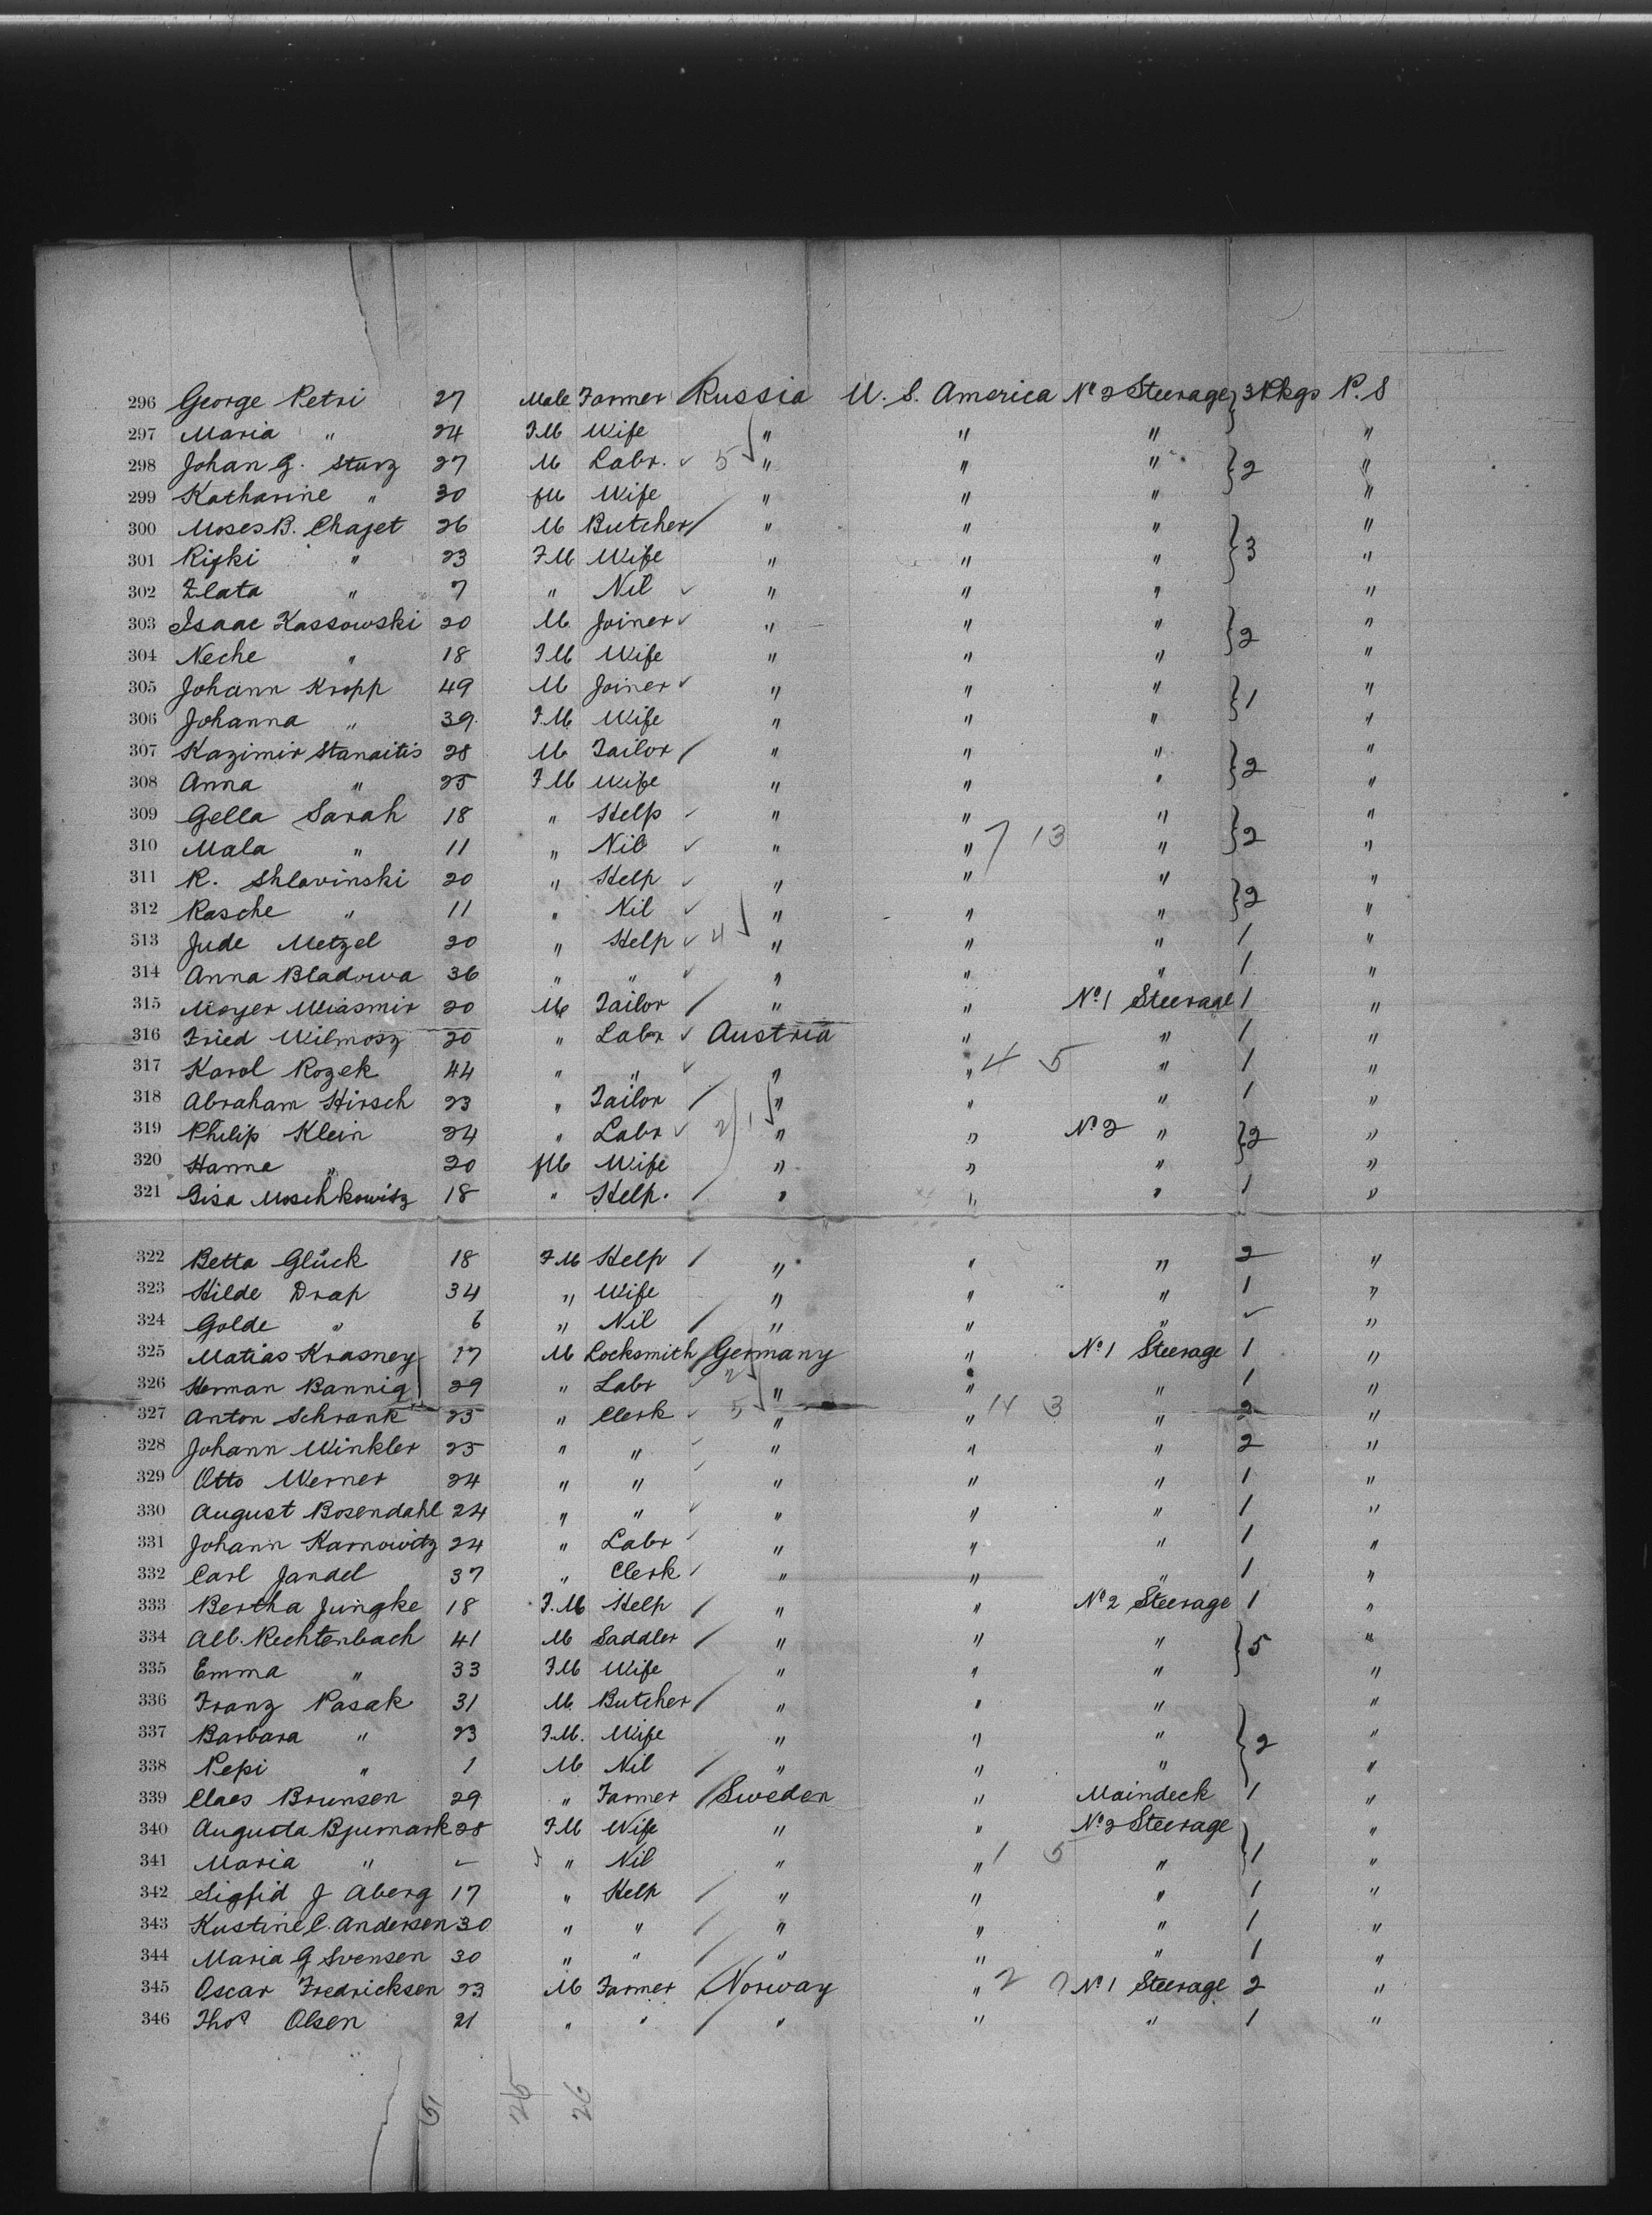 296 George Petri 27 Male Farmer Russia U. S. America No 2 Steerage } 3 Pkgs P. S
297 Maria " 24 FM Wife " " " "
298 Johan G. Sturz 27 M Labr. ✓ 5 " " " } 2 "
299 Katharine " 30 fM Wife " " " "
300 Moses B. Chajet 26 M Butcher / " " " "
301 Rifki " 23 FM Wife " " " } 3 "
302 Zlata " 7 " Nil ✓ " " " "
303 Isaac Kassowski 20 M Joiner ✓ " " " "
304 Neche " 18 FM Wife " " " } 2 "
305 Johann Kropp 49 M Joiner ✓ " " " } 1 "
306 Johanna " 39 FM Wife " " " "
307 Kazimir Stanaitis 28 M Tailor / " " " "
308 Anna " 25 FM Wife " " " } 2 "
309 Gella Sarah 18 " Help ✓ " " " "
310 Mala " 11 " Nil ✓ " " 7 13 " } 2 "
311 R. Shlavinski 20 " Help ✓ " " " "
312 Rasche " 11 " Nil ✓ " " " } 2 "
313 Jude Metzel 20 " Help ✓ 4 " " " 1 "
314 Anna Bladowa 36 " " ✓ " " " 1 "
315 Meyer Wiasmir 20 M Tailor / " " No 1 Steerage 1 "
316 Fried Wilmosz 20 " Labr ✓ Austria " " 1 "
317 Karol Rozek 44 " " ✓ " " 4 5 " 1 "
318 Abraham Hirsch 23 " Tailor / " " " 1 "
319 Philip Klein 24 " Labr ✓ 2 1 " " No 2 " } 2 "
320 Hanne " 20 fM Wife " " " "
321 Gisa Moschkowitz 18 " Help. / " " " 1 "
322 Betta Glück 18 FM Help / " " " 2 "
323 Hilde Drap 34 " Wife " " " 1 "
324 Golde " 6 " Nil / " " " ✓ "
325 Matias Krasney 17 M Locksmith / Germany " No 1 Steerage 1 "
326 Herman Bannig 29 " Labr ✓ 2 " " " 1 "
327 Anton Schrank 25 " Clerk ✓ 5 " " 14 3 " 2 "
328 Johann Winkler 25 " " ✓ " " " 2 "
329 Otto Werner 24 " " ✓ " " " 1 "
330 August Bosendahl 24 " " ✓ " " " 1 "
331 Johann Karnowitz 24 " Labr ✓ " " " 1 "
332 Carl Jandel 37 " Clerk / " " " 1 "
333 Bertha Jungke 18 F.M Help / " " No 2 Steerage 1 "
334 Alb. Rechtenbach 41 M Saddler / " " " } 5 "
335 Emma " 33 FM Wife " " " "
336 Franz Pasak 31 M Butcher / " " " "
337 Barbara " 23 F.M. Wife " " " } 2 "
338 Pepi " 1 M Nil / " " " "
339 Claes Brunsen 29 " Farmer / Sweden " Maindeck 1 "
340 Augusta Bjumark 28 FM Wife " " No 2 Steerage "
341 Maria " " Nil " " 1 5 " } 1 "
342 Sigfid J Aberg 17 " Help / " " " 1 "
343 Kustine C. Andersen 30 " " / " " " 1 "
344 Maria G Svensen 30 " " / " " " 1 "
345 Oscar Fredricksen 23 M Farmer / Norway " 2 No 1 Steerage 2 "
346 Thos Olsen 21 " " / " " " 1 "
51 25 26